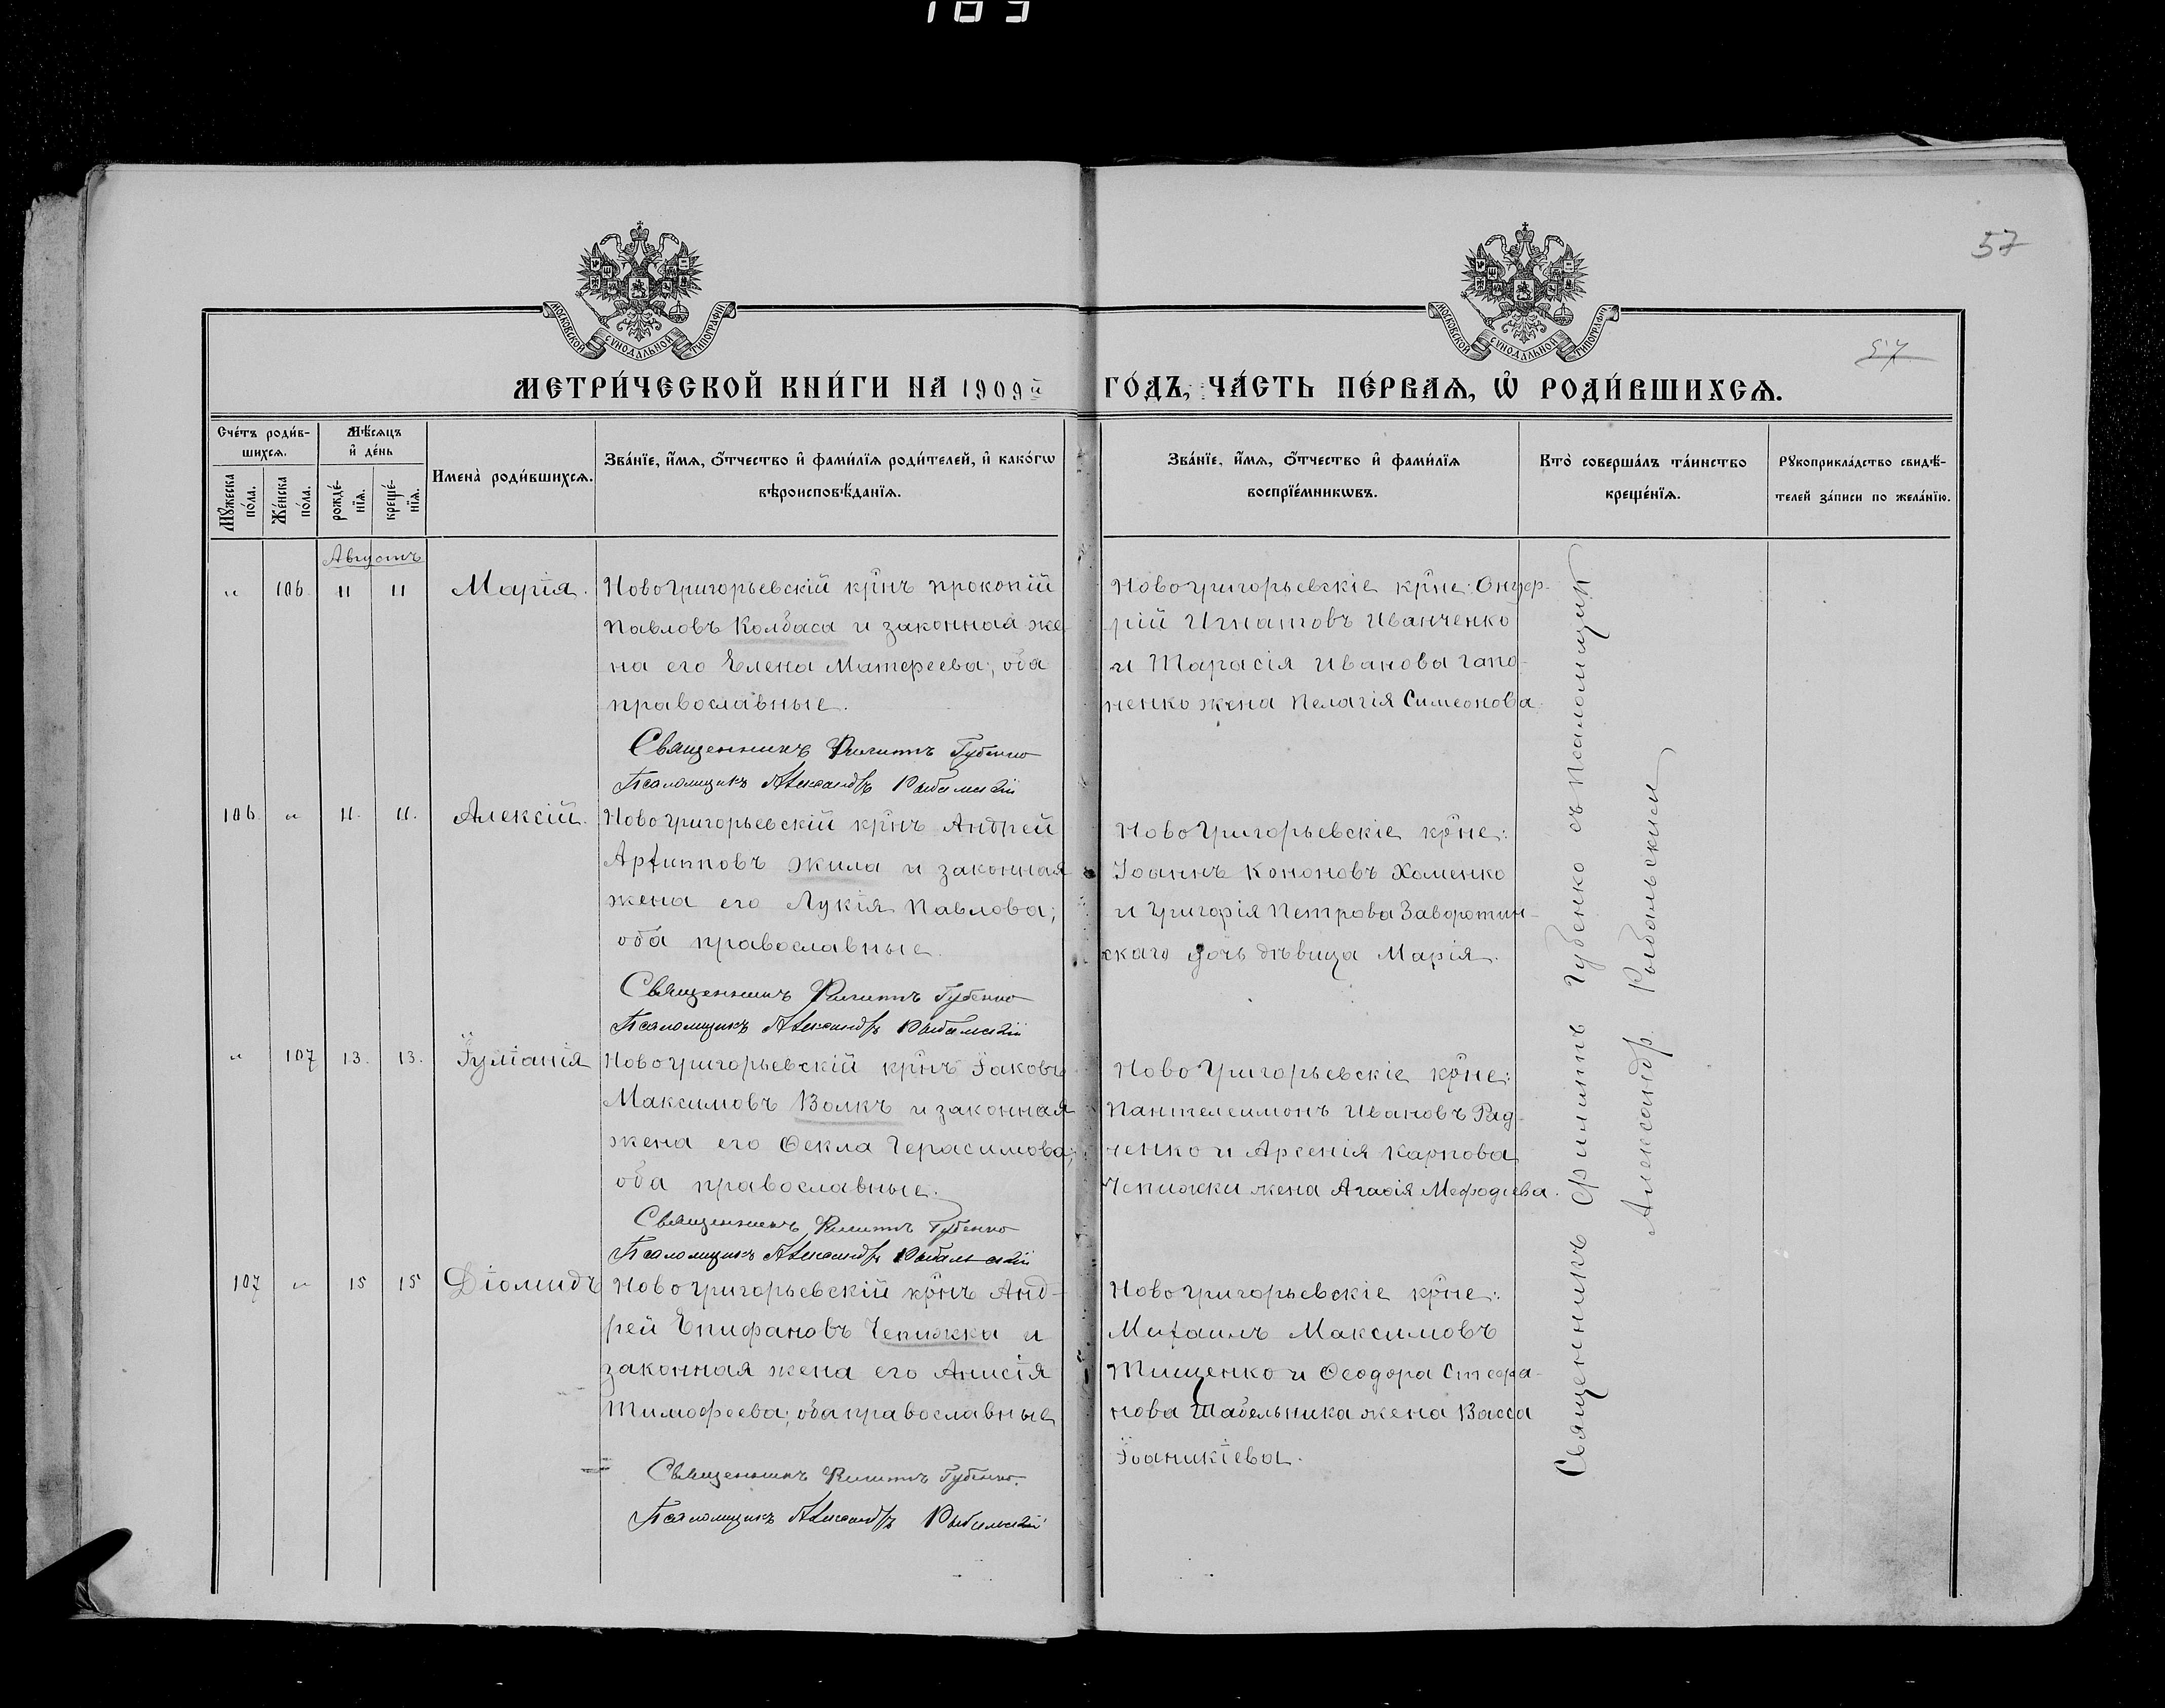 57
МОСКОВСКОЙ СУНОДАЛЬНОЙ ТИПОГРАФІИ
МОСКОВСКОЙ СУНОДАЛЬНОЙ ТИПОГРАФІИ
57
МЕТРИ́ЧЕСКОЙ КНИ́ГИ НА 1909й ГО́ДЪ, ЧА́СТЬ ПЕ́РВАѦ, Ѡ҆ РОДИ́ВШИХСѦ.
Сче́тъ роди́в-
шихсѧ.
Мѣ́сѧцъ
и҆ де́нь
Мꙋ́жеска
по́ла.
Же́нска
по́ла.
рожде́-
нїѧ.
креще́-
нїѧ.
Имена̀ роди́вшихсѧ.
Зва́нїе, и҆́мѧ, ѻ҆́тчество и҆ фами́лїѧ роди́телей, и҆ како́гѡ
вѣроисповѣ́данїѧ.
Зва́нїе, и҆́мѧ, ѻ҆́тчество и҆ фами́лїѧ
воспрїе́мникѡвъ.
Кто̀ соверша́лъ та́инство
креще́нїѧ.
Рꙋкоприкла́дство свидѣ́-
телей за́писи по жела́нїю.
Августъ
" 106 11 11 Марія.
Новогригорьевскій крнъ Прокопій
Павловъ Колбаса и законная же
на его Елена Матфеева; оба
православные.
Священникъ Филиппъ Губенко
Псаломщикъ Александръ Рыбальскій
Новогригорьевскіе крне: Онуф-
рій Игнатовъ Иванченко
и Тарасія Иванова Гапо-
ненко жена Пелагія Симеонова.
106 " 11. 11. Алексій.
Новогригорьевскій крнъ Андрей
Архипповъ Жила и законная
жена его Лукія Павлова;
оба православные.
Священникъ Филиппъ Губенко
Псаломщикъ Александръ Рыбальскій
Новогригорьевскіе крне:
Іоаннъ Кононовъ Хоменко
и Григорія Петрова Заворотин-
скаго дочь дѣвица Марія.
" 107 13. 13. Іуліанія
Новогригорьевскій крнъ Іаковъ
Максимовъ Волкъ и законная
жена его Ѳекла Герасимова;
оба православные.
Священникъ Филиппъ Губенко
Псаломщикъ Александръ Рыбальскій
Новогригорьевскіе крне:
Пантелеимонъ Ивановъ Рад-
ченко и Арсенія Карпова
Чепижки жена Агаѳія Меѳодіева.
107 " 15 15 Діомидъ
Новогригорьевскій крнъ Анд-
рей Епифановъ Чепижка и
законная жена его Анисія
Тимофеева; оба православные
Священникъ Филиппъ Губенко.
Псаломщикъ Александръ Рыбальскій
Новогригорьевскіе крне:
Михаилъ Максимовъ
Тищенко и Ѳеодора Стефа-
нова Шабельника жена Васса
Іоаникіева.
Священникъ Филиппъ Губенко съ Псаломщик
Александр Рыбальским